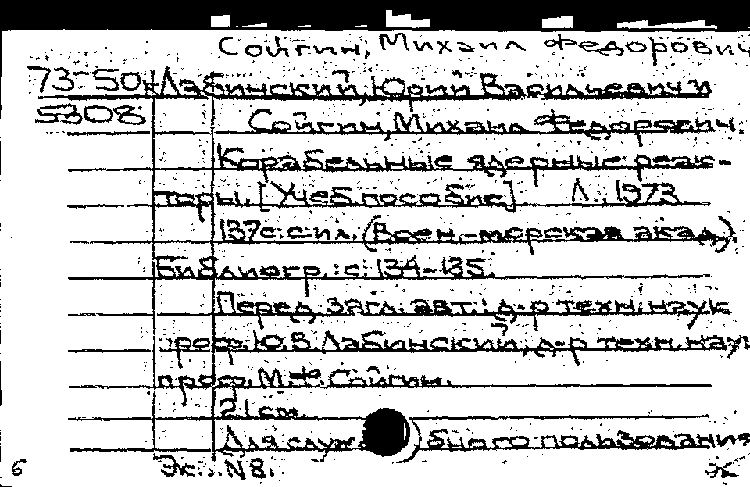 Сойгин, Михаил Федорович
73-50 Лабинский, Юрий Васильевич и
5308 Сойгин, Михаил Федорович.
Корабельные ядерные реак-
торы. [Учеб. пособие]. Л., 1973
137с. с ил. (Воен.-морская акад.)
Библиогр.: с. 134-135.
Перед загл. авт.: д-р техн. наук
проф. Ю.В. Лабинский, д-р техн. наук
проф. М.Ф. Сойгин.
21 см.
Для служебного пользования
б Экз. N 8.